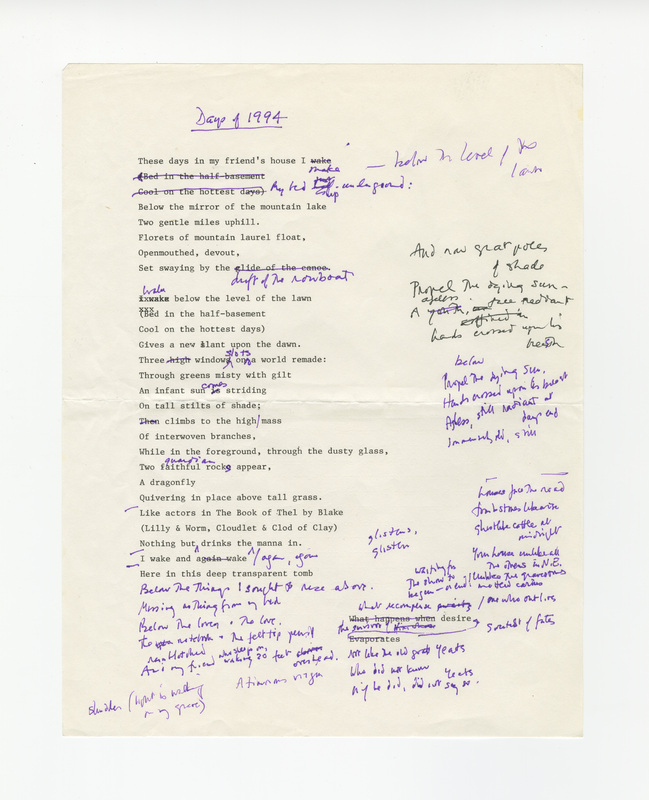 Days of 1994
These days in my friend's house I wake
make
— below the level of the
lawn
(Bed in the half-basement
Cool on the hottest days)
My bed underground:
Below the mirror of the mountain lake
Two gentle miles uphill.
Florets of mountain laurel float,
Openmouthed, devout,
Set swaying by the glide of the canoe.
drift of the rowboat
wake
ixwake below the level of the lawn
xxx
(Bed in the half-basement
Cool on the hottest days)
Gives a new slant upon the dawn.
slots
Three high windows on a world remade:
Through greens misty with gilt
comes
An infant sun is striding
On tall stilts of shade;
Then climbs to the high/mass
Of interwoven branches,
While in the foreground, through the dusty glass,
guardian
Two faithful rocks appear,
A dragonfly
Quivering in place above tall grass.
Like actors in The Book of Thel by Blake
(Lilly & Worm, Cloudlet & Clod of Clay)
Nothing but drinks the manna in.
I wake and again wake /again, again
Here in this deep transparent tomb
Below the things I sought to rise above.
Missing nothing from my bed
Below the lover & the love.
The notebook & the felt tip pencil
And my friend walking 20 feet overhead.
shudder (light is walking
on my grave)
And now great poles
of shade
Propel the dying sun –
ageless free radiant
A youth,
hands crossed upon his
breath
below
Propel the dying sun.
Hands crossed upon his breast
Ageless, still radiant at
day's end
Immensely old, still
houses face the road
tombstones likewise
ghostlike cattle at
midnight
Your house unlike all
the others in N.E.
glistens,
glisten
waiting for
the show to
begin
what recompense
/ one who outlives
What happens when desire
Evaporates
greatest of fates
Not like the old great Yeats
Who did not know
Yeats
or if he did, did not say so.